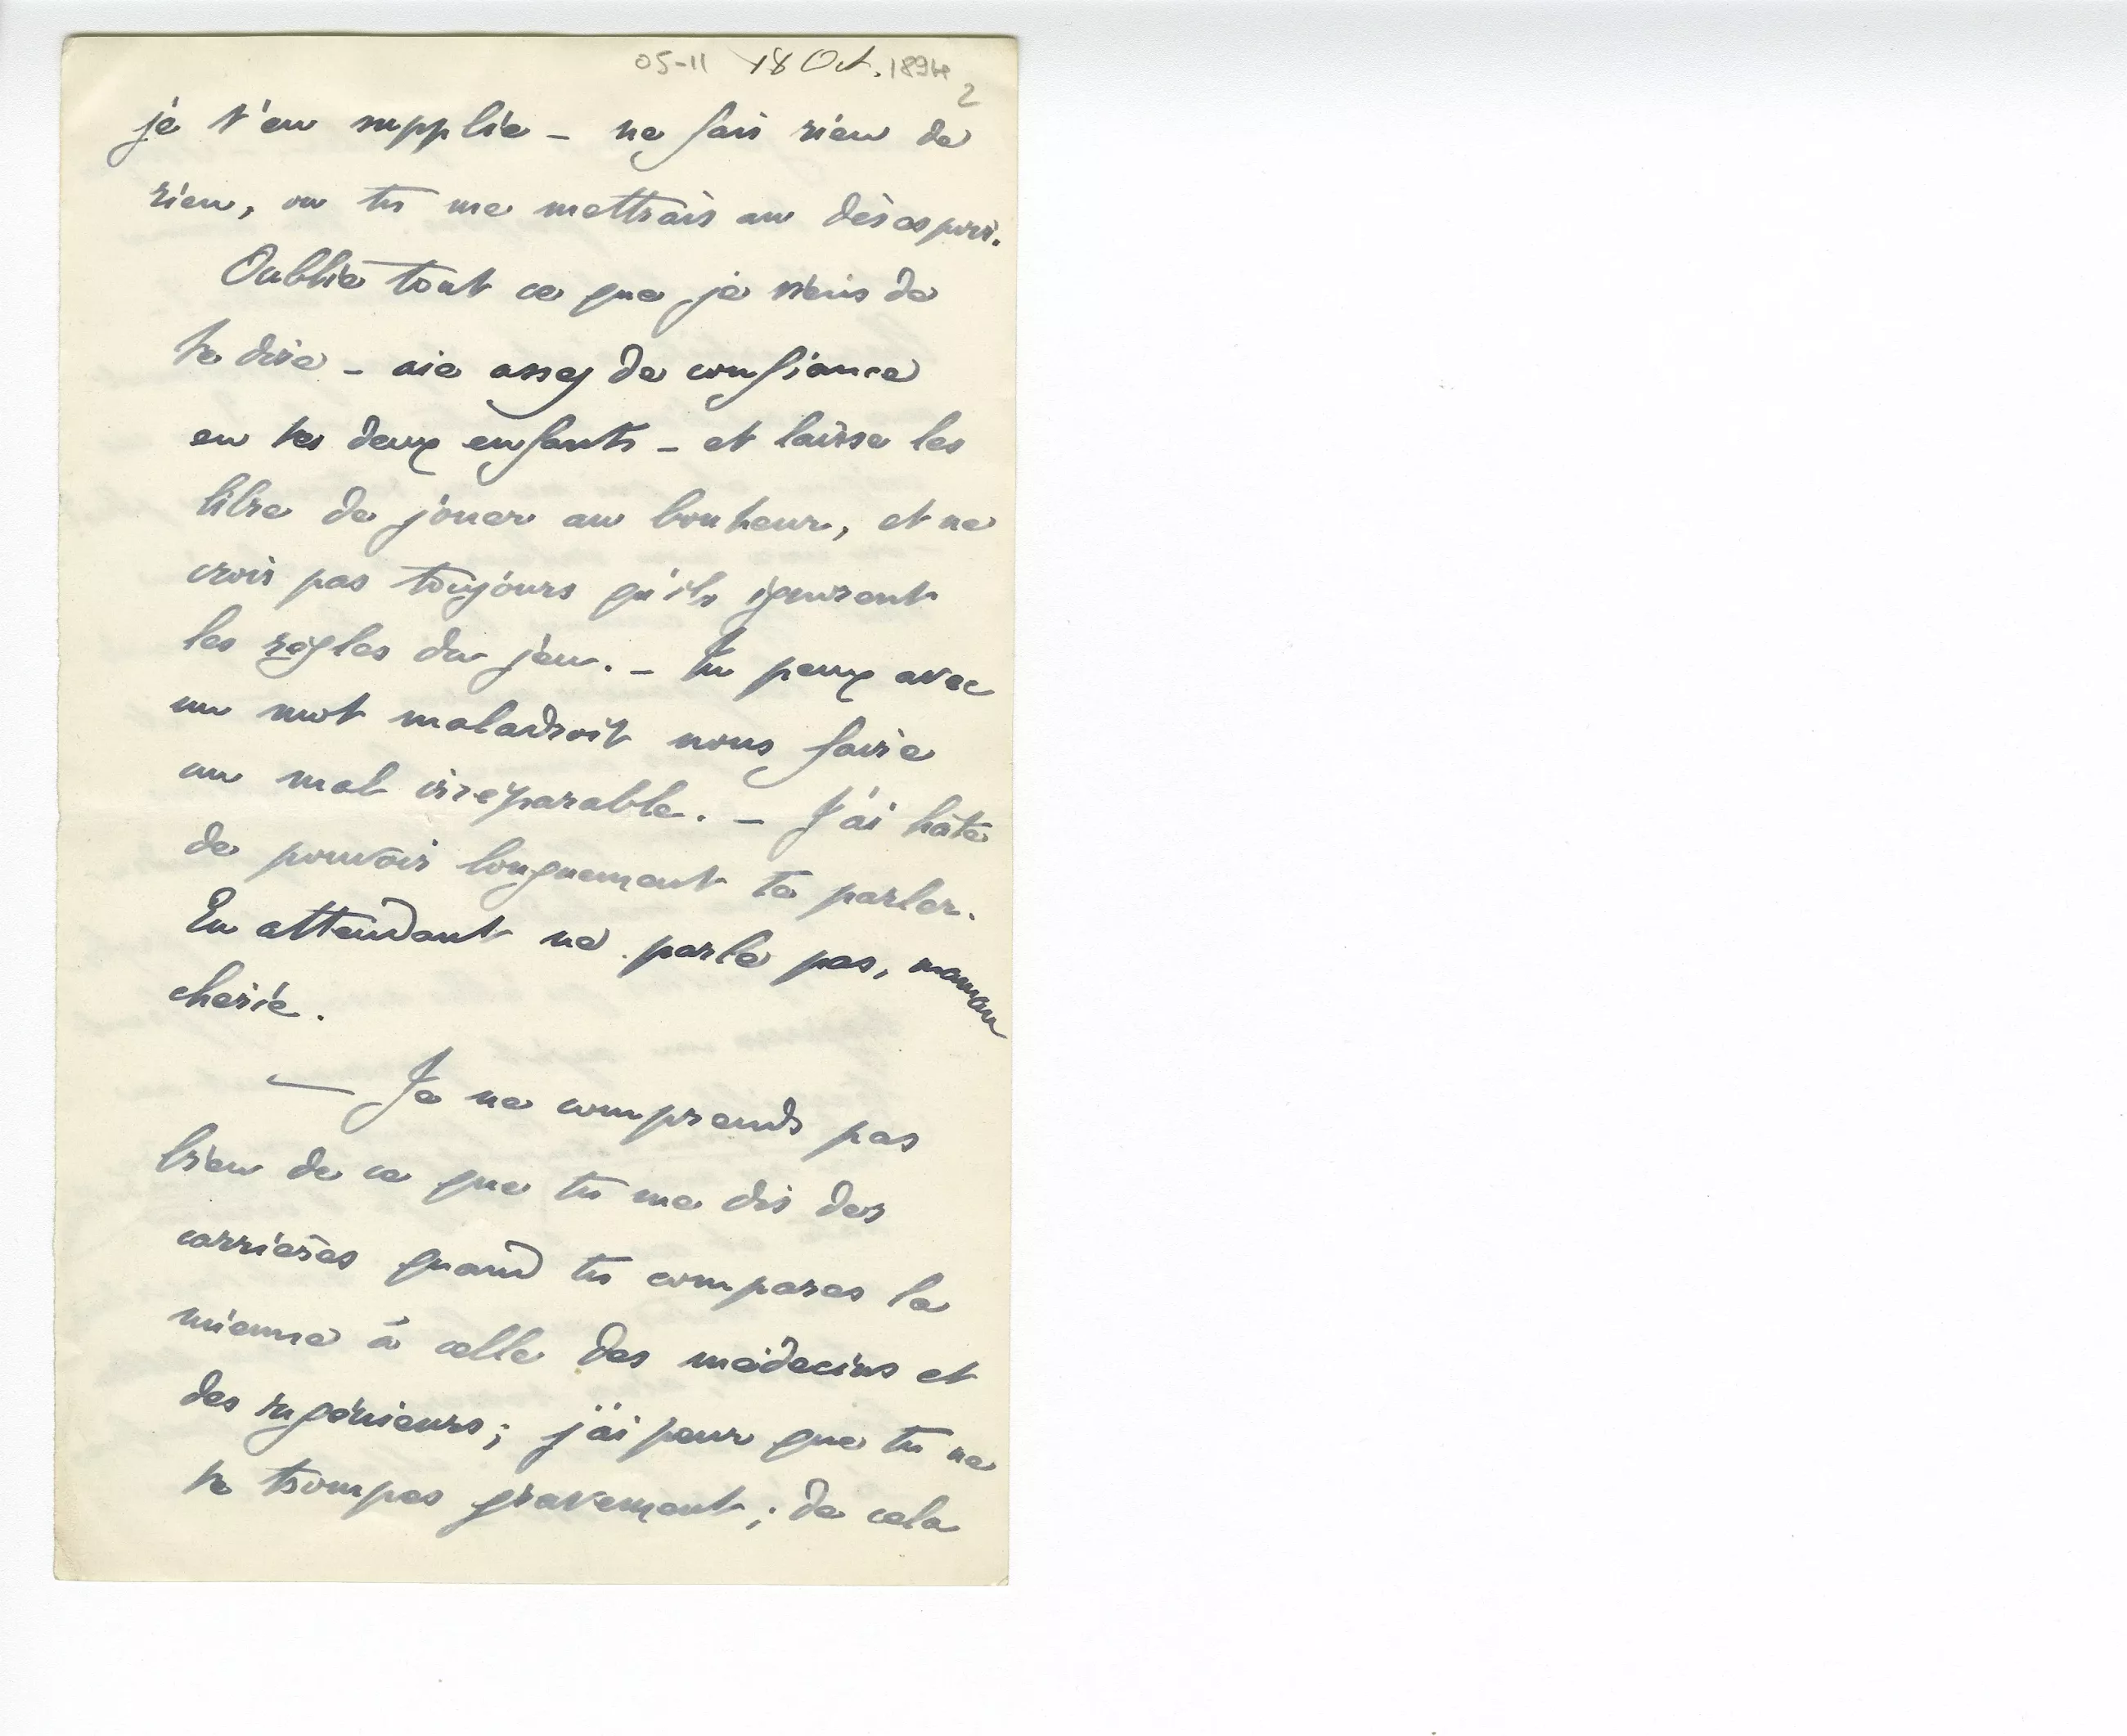 05-11 18 Oct. 1894
2
je t'en supplie – ne fais rien de
rien, ou tu me mettrais au désespoir.
Oublie tout ce que je viens de
te dire – aie assez de confiance
en tes deux enfants – et laisse les
libre de jouer au bonheur, et ne
crois pas toujours qu'ils ignorent
les règles du jeu. – Tu peux avec
un mot maladroit nous faire
un mal irréparable. – J'ai hâte
de pouvoir longuement te parler.
En attendant ne parle pas, maman
chérie.
— Je ne comprends pas
bien de ce que tu me dis des
carrières quand tu compares la
mienne à celle des médecins et
des ingénieurs ; j'ai peur que tu ne
te trompes gravement ; de cela